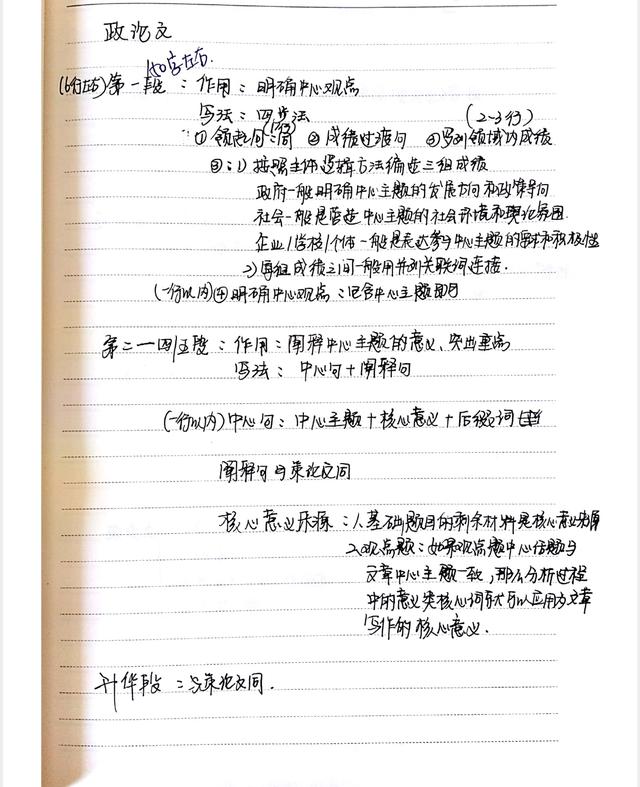 政论文
150字左右.
(6行左右)第一段：作用：明确中心观点
写法：四步法
(2-3行)
①领起词:词 ②成绩过渡句 ③罗列领域内成绩
③:1)按照主体逻辑方法编造三组成绩
政府一般明确中心主题的发展方向和政策导向
社会一般是营造中心主题的社会环境和舆论氛围
企业/学校/个体一般是表达参与中心主题的需求和积极性
2)每组成绩之间一般用并列关联词连接.
(一行以内)④明确中心观点：包含中心主题即可
第二一四/五段：作用：阐释中心主题的意义、突出重点
写法：中心句+阐释句
(一行以内)中心句：中心主题+核心意义+后缀词
阐释句与策论文同
核心意义来源：1.基础题目的剩余材料是核心意义
2.观点题：如果观点题中心话题与
文章中心主题一致,那么分析过程
中的意义类核心词就可以应用为文章
写作的核心意义.
升华段：与策论文同.